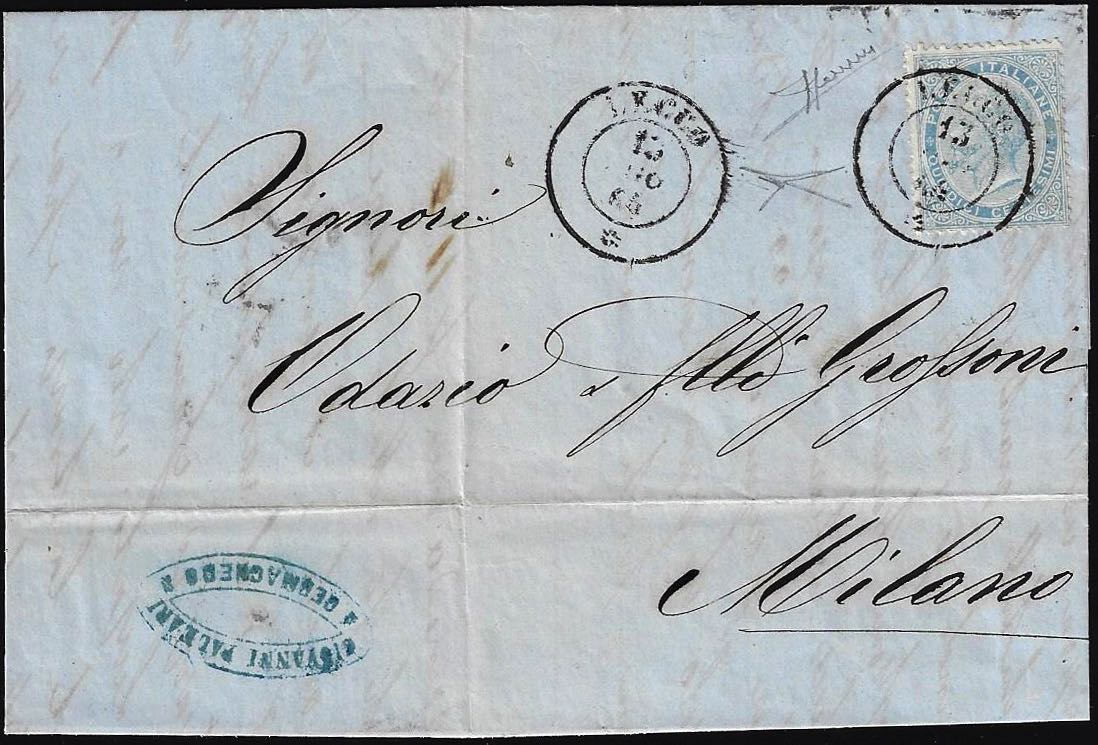 LECCO
13
64
LECCO
13
POSTE ITALIANE
QUINDICI CENTESIMI
Signori
Odazio e flli Grossoni
Milano
GIOVANNI PALMARI
GERMAGNEDO